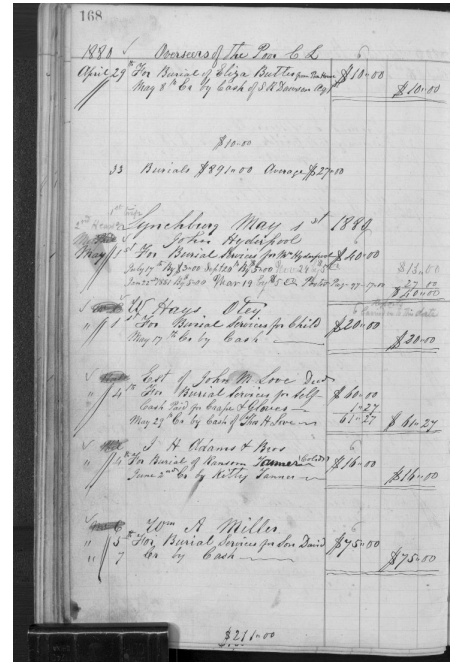 168
1880 Overseers of The Poor C L
April 29th For Burial of Eliza Butler from Poor House $10=00
May 8th Cr by Cash of S R Dawson Agt $10=00
$10=00
33 Burials $891=00 Average $27=00
Lynchburg May 1st 1880
John Hyderpool
May 1st For Burial Services for Mr Hyderpool $40=00
July 17th By $3=00 Sept 20th By 5=00 Nov 29 By $5
Jan 25th 1881 By 5=00 Mar 19 By $5 Page 97=7=00 27=00
$40=00
W Hays Otey
" 1st For Burial Services for Child $20=00
May 17th Cr by Cash $20=00
Est of John M Love Decd
" 4th For Burial Services for Self $60=00
Cash Paid for Crape & Gloves 1=27
May 29th Cr by Cash of Thos H Love 61=27 $61=27
J H Adams & Bros
" 4th For Burial of Ransom Tanner (Colored) $16=00
June 2nd Cr by Kitty Tanner $16=00
Wm A Miller
" 5th For Burial Services for Son David $75=00
" 7 Cr by Cash $75=00
$211=00